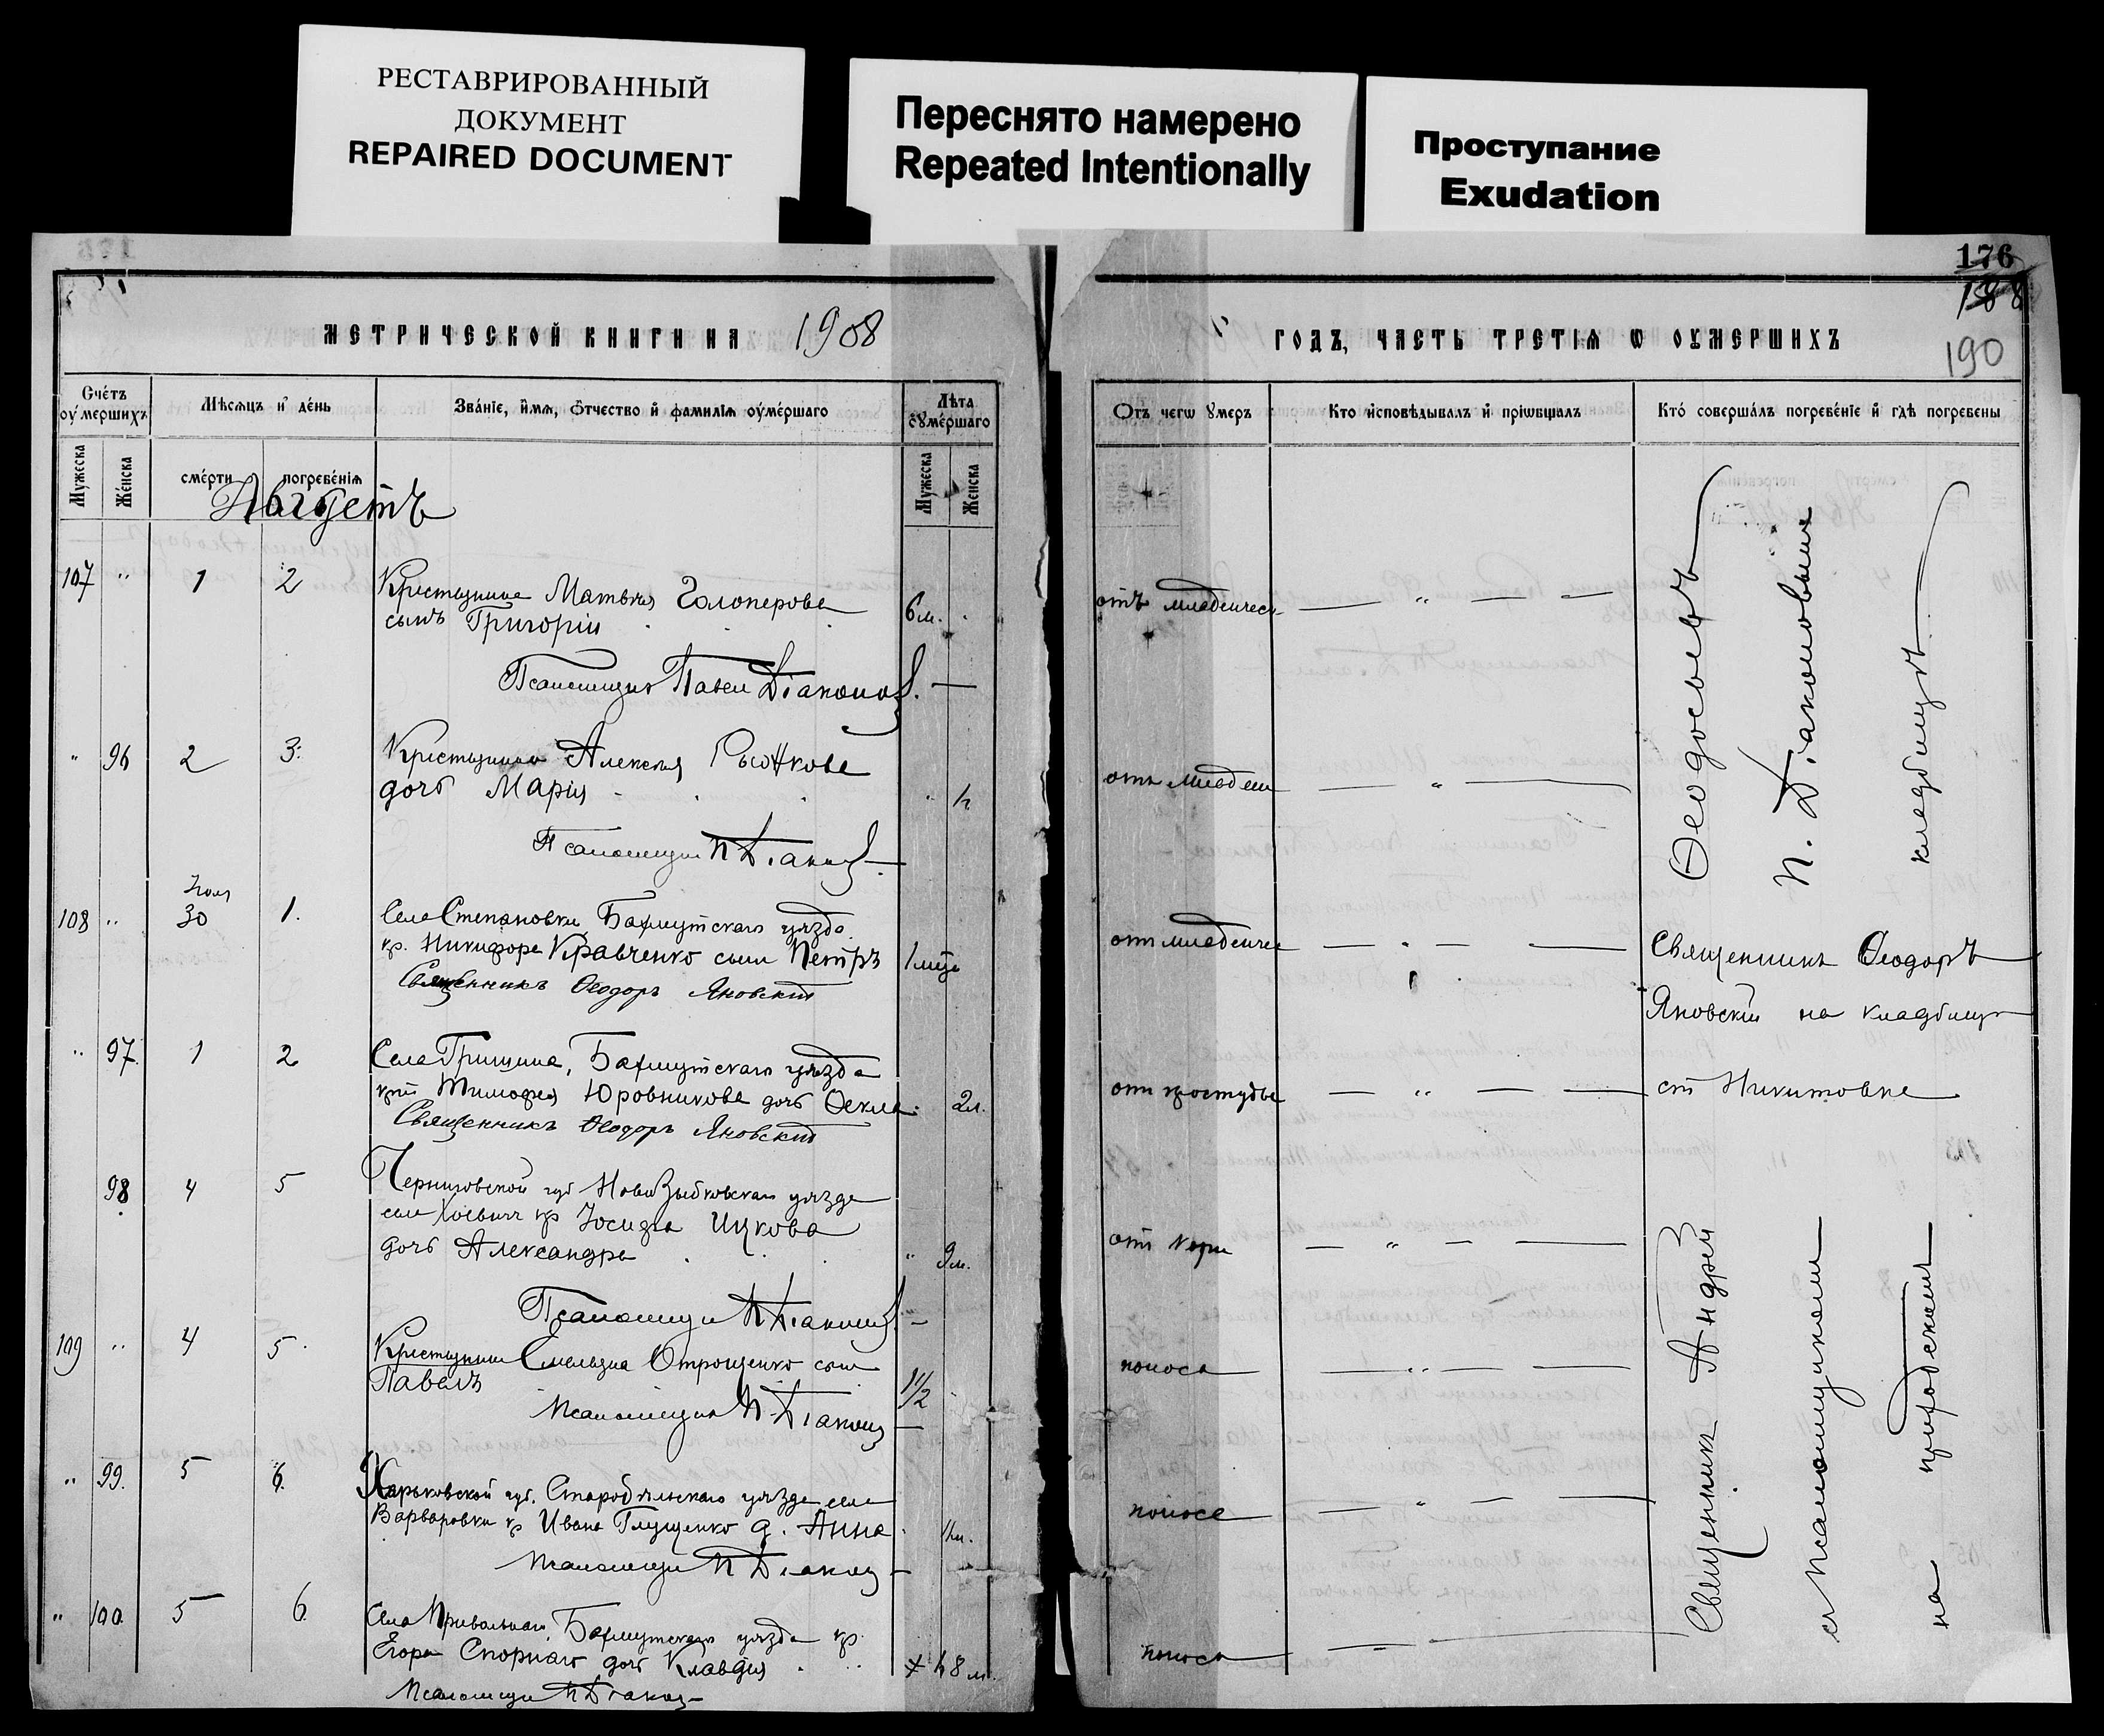 РЕСТАВРИРОВАННЫЙ
ДОКУМЕНТ
REPAIRED DOCUMENT
Переснято намерено
Repeated Intentionally
Проступание
Exudation
176
188
190
МЕТРИЧЕСКОЙ КНИГИ НА 1908
ГОДЪ, ЧАСТЬ ТРЕТІѦ Ѡ ОУМЕРШИХЪ
Счетъ оумершихъ
Мѣсѧцъ и день
Званіе, имѧ, ѻтчество и фамиліѧ оумершаго
Лѣта оумершаго
Отъ чегѡ умеръ
Кто исповѣдывалъ и пріѡбщалъ
Кто совершалъ погребеніе и гдѣ погребены
Мужеска
Женска
смерти
погребеніѧ
Мужеска
Женска
Августъ
107 " 1 2 Крестьянина Матвѣя Голоперова
сынъ Григорій 6 м. отъ младенческ
Псаломщикъ Павелъ Діаконов
" 96 2 3 Крестьянина Алексѣя Рыжкова
дочь Марія " ½ отъ младен
Псаломщикъ П Діаконов
108 " Іюля 30 1. Села Степановки Бахмутскаго уѣзда
кр. Никифора Кравченко сынъ Петръ 1 мѣс отъ младенчес
Священникъ Ѳеодоръ Яновскій
Священникъ Ѳеодоръ
Яновскій на кладбищѣ
" 97 1 2 Села Гришина, Бахмутскаго уѣзда
кр Тимофея Юровникова дочь Ѳекла 2 л. отъ простуды
Священникъ Ѳеодоръ Яновскій
ст Никитовка
98 4 5 Черниговской губ Новозыбковскаго уѣзда
кр Іосифа Ицкова
дочь Александра " 9 м. отъ кори
Псаломщикъ П Діаконов
109 " 4 5 Крестьянина Отрощенко сынъ
Павелъ 1½ поноса
Псаломщикъ П. Діаконов
" 99. 5 6. Харьковской губ. Старобѣльскаго уѣзда села
Варваровки кр Ивана Глущенко д. Анна поноса
Псаломщикъ П Діаконов
" 100 5 6 Села Привольнаго, Бахмутскаго уѣзда кр.
Егора Спорнаго дочь Клавдія 8 м. поноса
Псаломщикъ П Діаконов
Ѳеодосьевъ
П. Діаконовымъ
кладбищѣ
Священникъ Андрей
съ псаломщикомъ
на приходскомъ